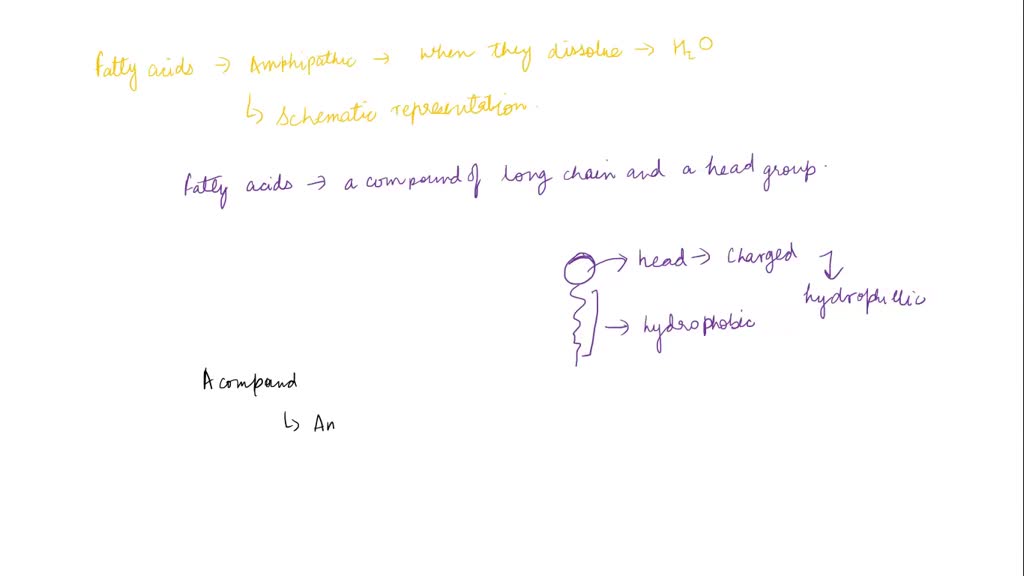 Fatty acids → Amphipathic → when they dissolve → H₂O
↳ Schematic representation.
Fatty acids → a compound of long chain and a head group.
→ head → Charged
hydrophillic
→ hydrophobic
A compound
↳ An